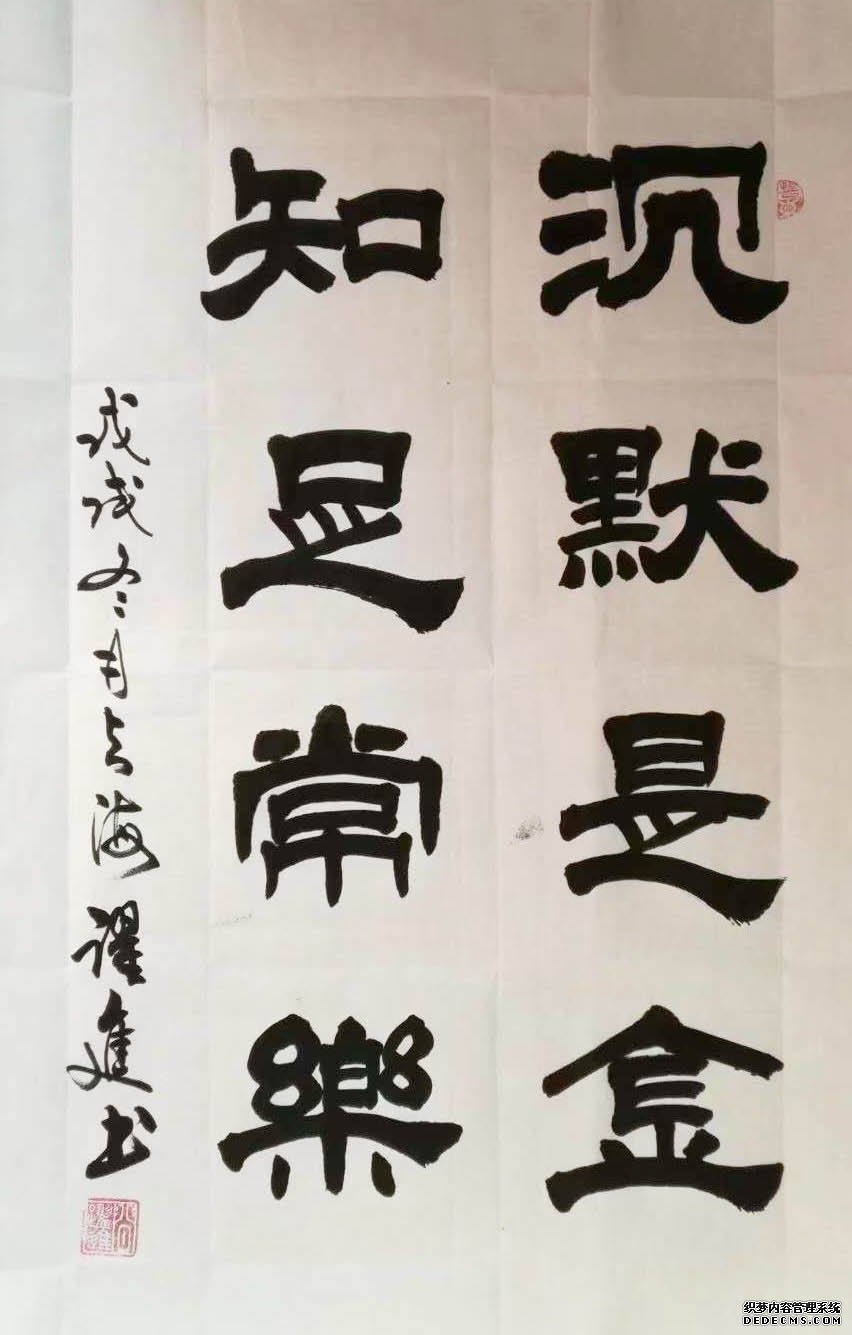 沉默是金
知足常樂
戊戌冬月
海
進书
织梦内容管理系统
DEDECMS.COM